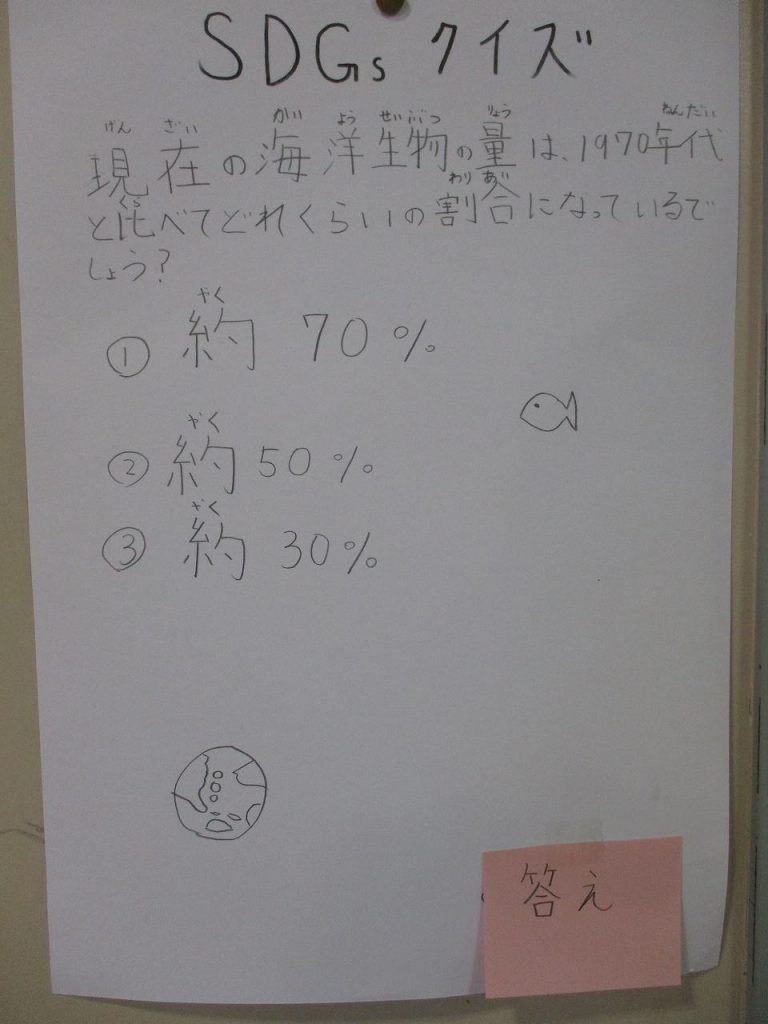 SDGs クイズ
げん ざい がい よう せいぶつ りょう ねんだい
現在の海洋生物の量は、1970年代
くら わり あい
と比べてどれくらいの割合になっているで
しょう?
やく
① 約 70%
やく
② 約 50%
やく
③ 約 30%
答え